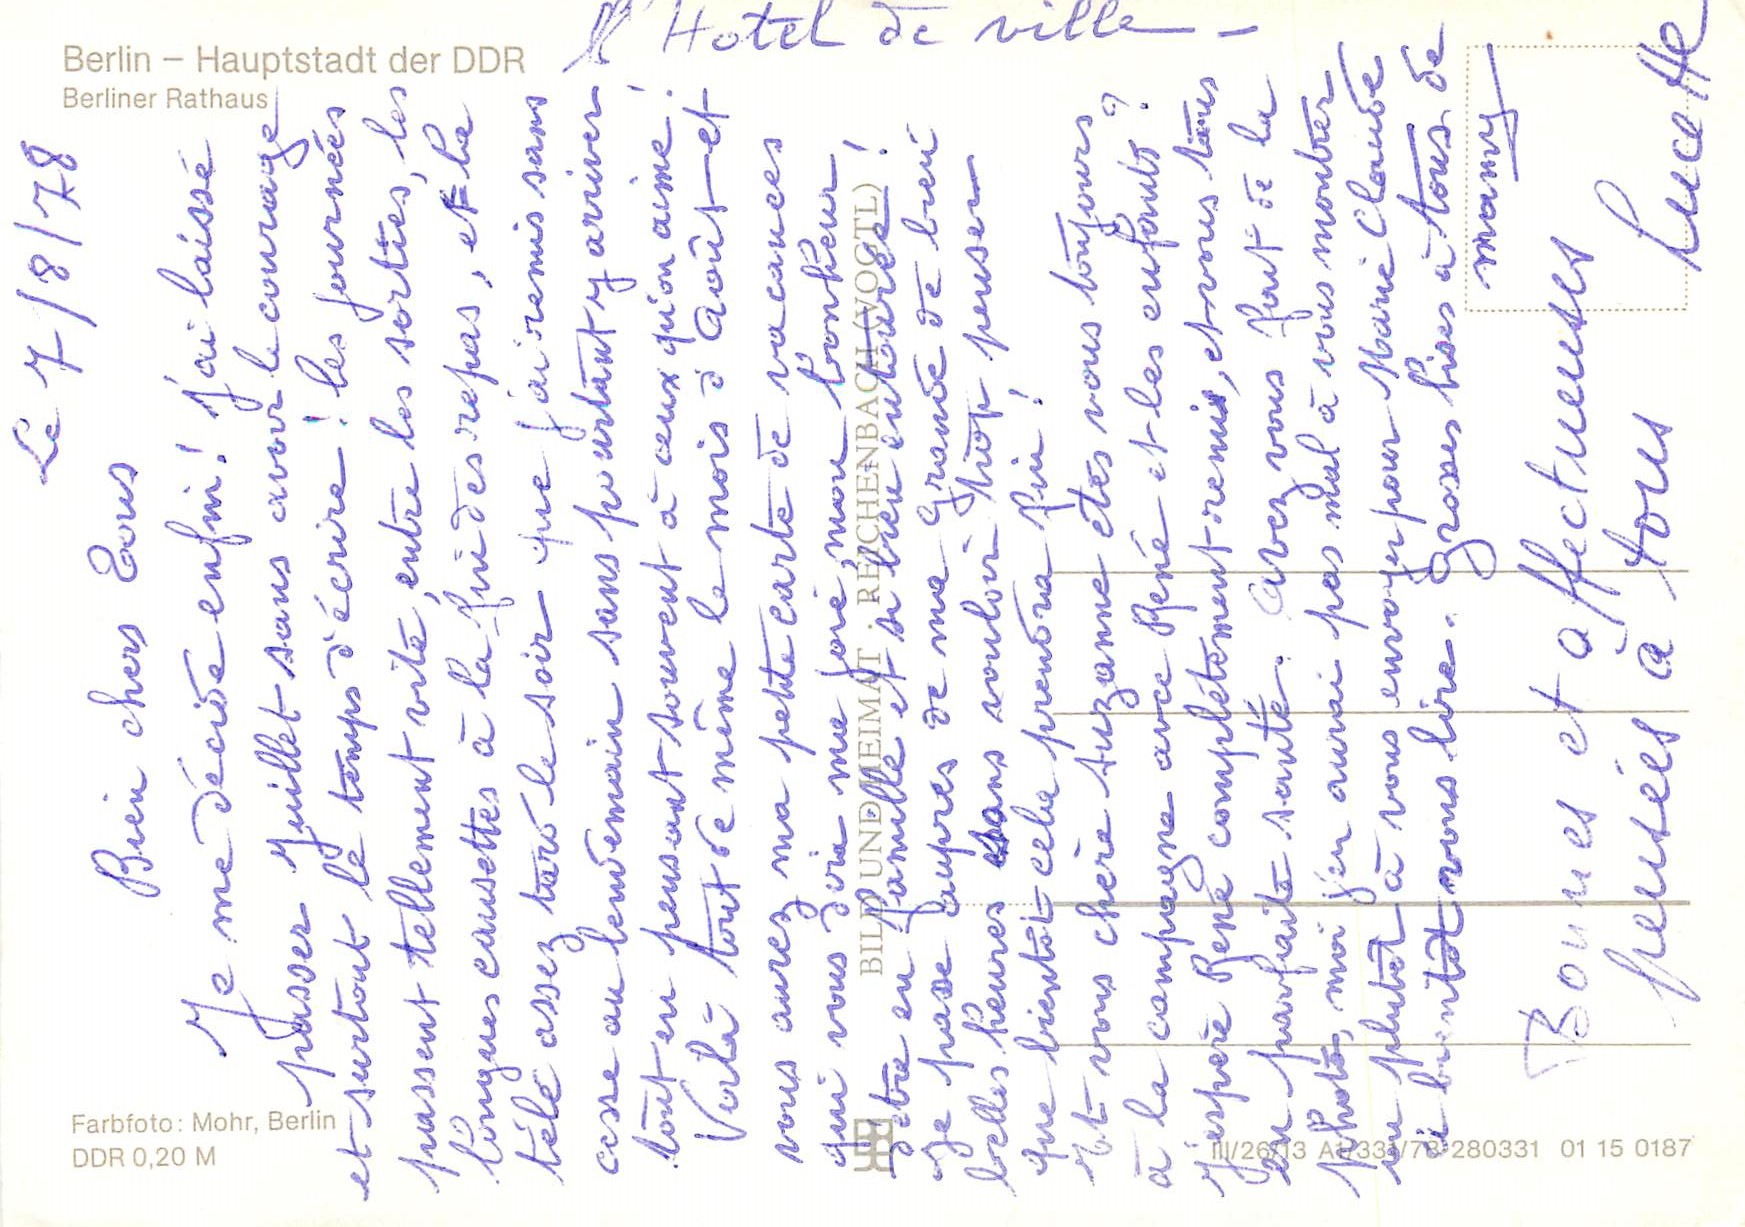 Berlin – Hauptstadt der DDR
Berliner Rathaus
l'Hotel de ville –
Le 7/8/78
Bien chers Tous
Je me décide enfin! j'ai laissé
passer Juillet sans avoir le courage
et surtout le temps d'écrire! les journées
passent tellement vite, entre les sorties, les
longues causettes à la fin des repas, et la
télé assez tard le soir que j'ai remis sans
cesse au lendemain sans pourtant y arriver
tout en pensant souvent à ceux qu'on aime!
Voilà tout de même le mois d'Août et
vous aurez ma petite carte de vacances
qui vous dira ma joie, mon bonheur
d'être en famille et si bien entourée!
Je passe auprès de ma grande de bien
belles heures sans vouloir trop penser
que bientôt cela prendra fin!
Et vous chère Suzanne êtes vous toujours
à la campagne avec René et les enfants?
J'espère René complètement remis, et vous tous
en parfaite santé. Avez vous fait de la
photo, moi j'en aurai pas mal à vous montrer
ou plutôt à vous envoyer pour Marie Claude
à bientôt vous lire. Grosses bises à tous de
mamy
Bonnes et affectueuses
pensées à tous
Lucette
BILD UND HEIMAT · REICHENBACH (VOGTL)
Farbfoto: Mohr, Berlin
DDR 0,20 M
III/26/13 A1/331/78 280331 01 15 0187